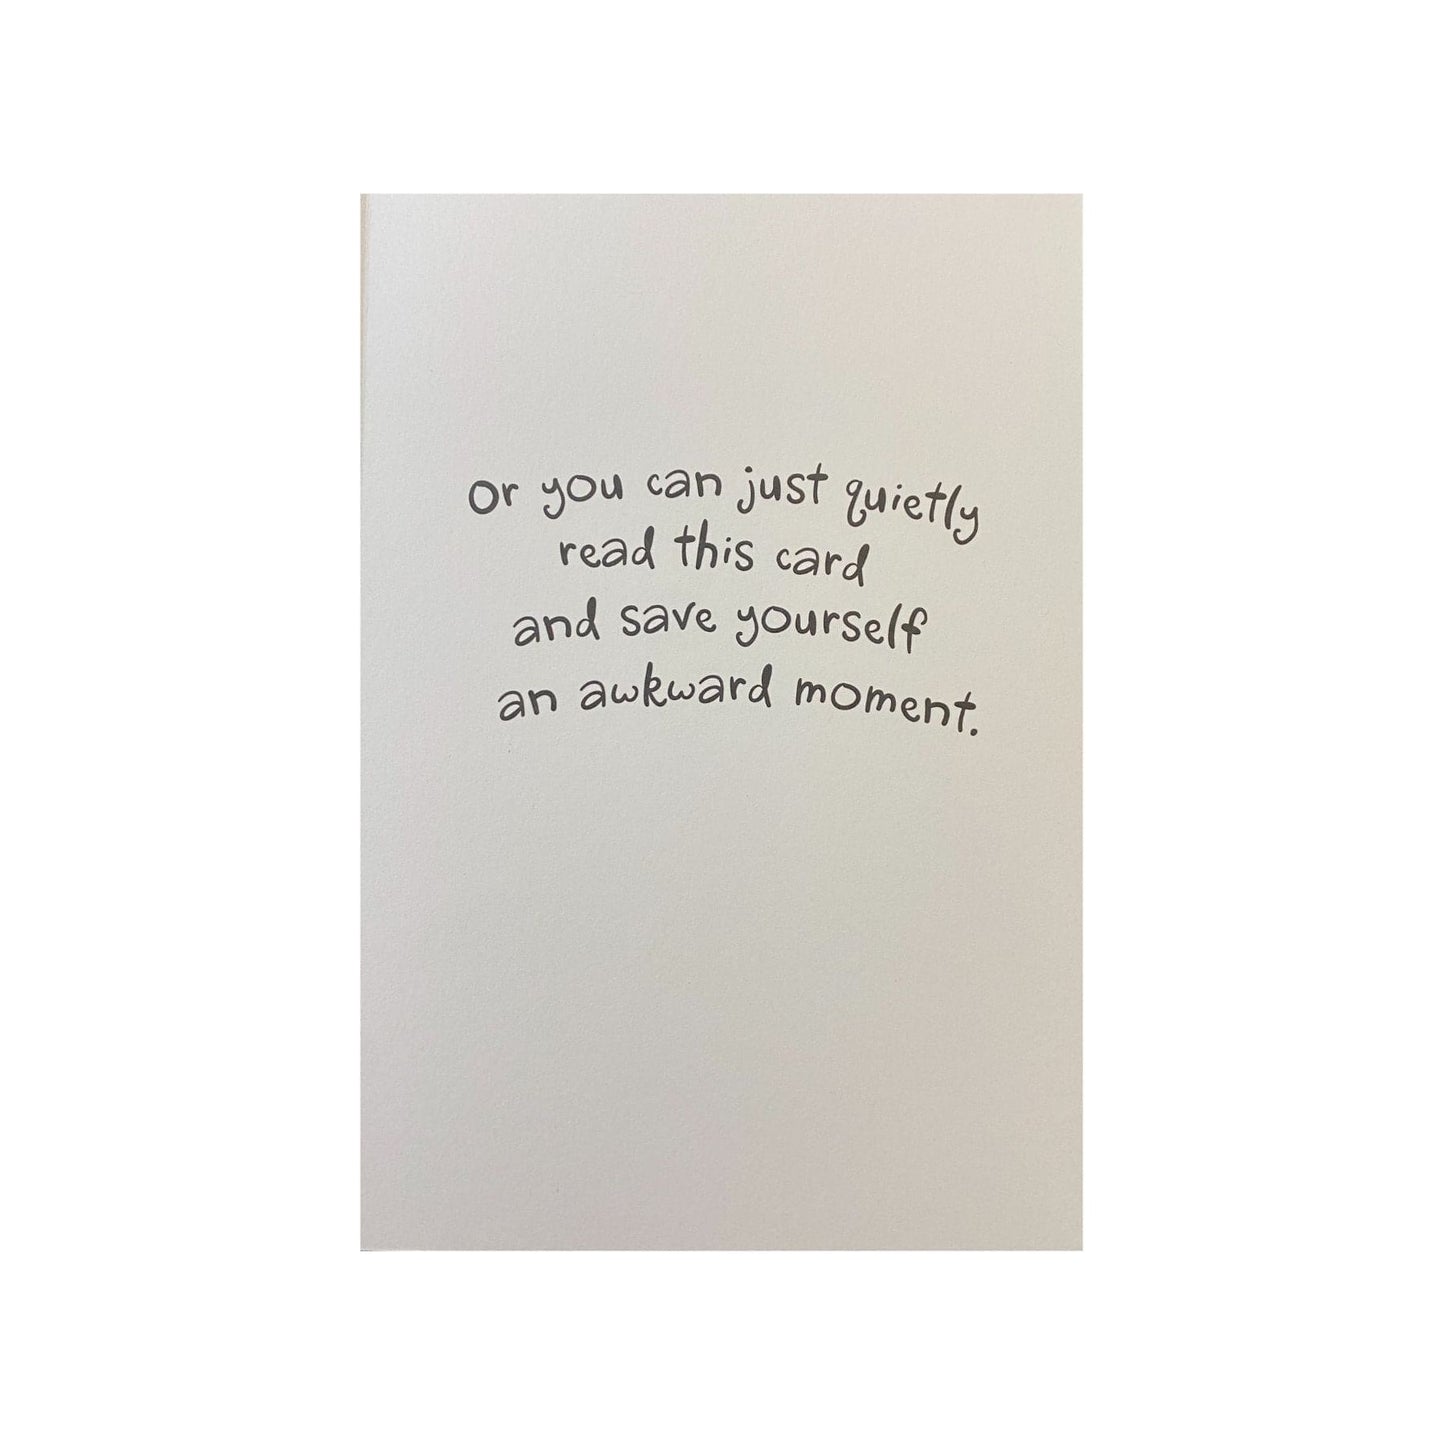 Or you can just quietly
read this card
and save yourself
an awkward moment.